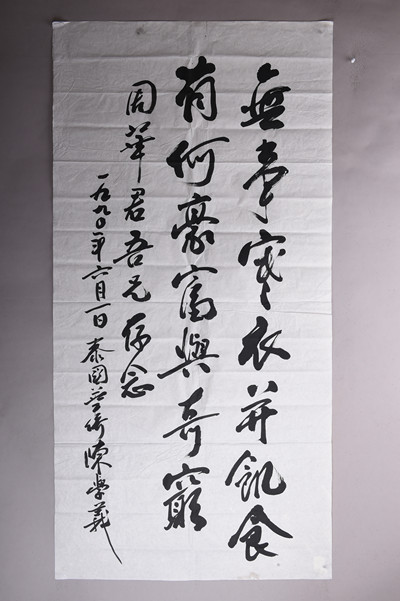 無事寒衣并飢食
有何豪富與奇窮
周華君吾兄存念
一九九〇年六月一日泰國華僑陳學義